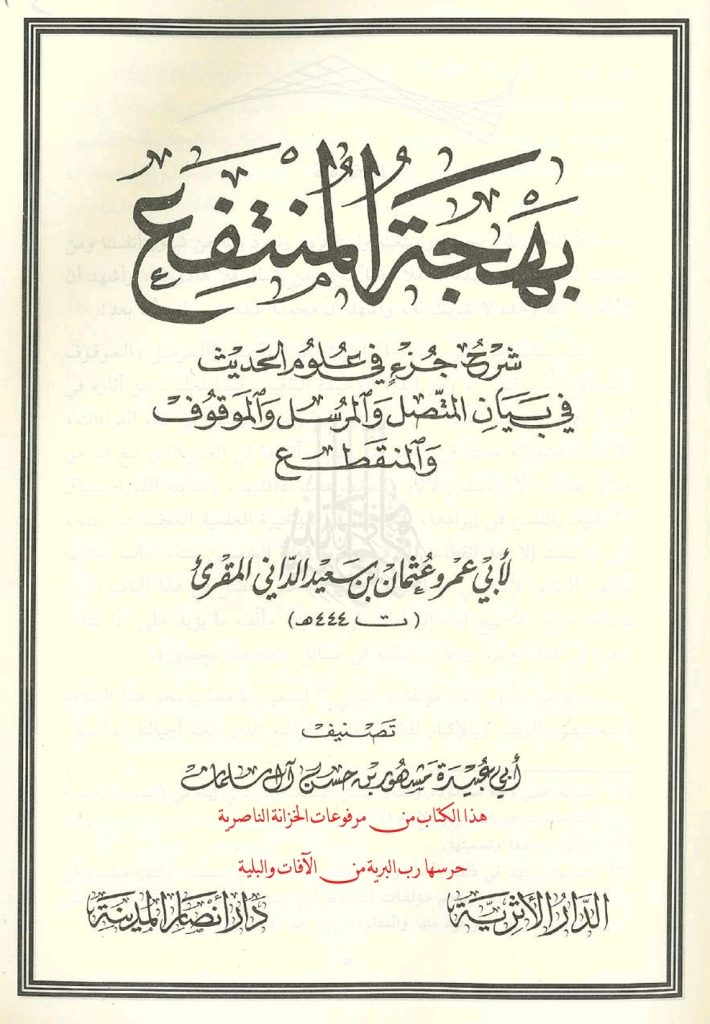 بَهْجَةُ المُنْتَفِعِ
شَرْحُ جُزْءٍ فِي عُلُومِ الحَدِيثِ
فِي بَيَانِ المُتَّصِلِ وَالمُرْسَلِ وَالمَوْقُوفِ
وَالمُنقَطِعِ
لأبي عمرو عثمان بن سعيد الداني المقرئ
(ت ٤٤٤هـ)
تَصْنِيف
أبي عبيدة مشهور بن حسن آل سلمان
هذا الكتاب من مرفوعات الخزانة الناصرية
حرسها رب البرية من الآفات والبلية
الدار الأثرية
دار أنصار المدينة